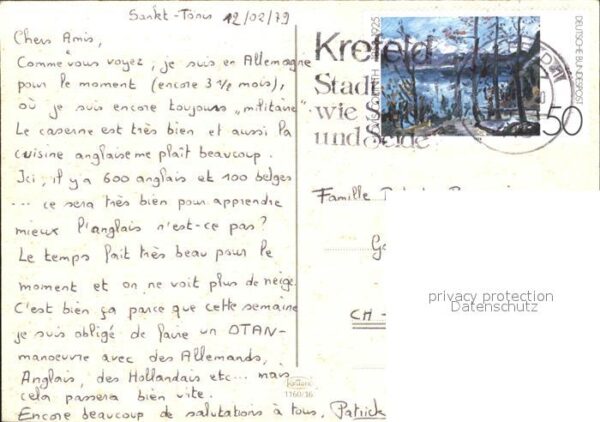 Sankt-Tönis 12/02/79
Chers Amis,
Comme vous voyez, je suis en Allemagne
pour le moment (encore 3 1/2 mois),
où je suis encore toujours "militaire"
Le caserne est très bien et aussi la
cuisine anglaise me plaît beaucoup.
Ici, il y a 600 anglais et 100 belges
... ce sera très bien pour apprendre
mieux l'anglais n'est-ce pas?
Le temps fait très beau pour le
moment et on ne voit plus de neige.
C'est bien ça parce que cette semaine
je suis obligé de faire un OTAN-
manoeuvre avec des Allemands,
Anglais, des Hollandais etc... mais
cela passera bien vite.
Encore beaucoup de salutations à tous, Patrick
1160/16
Krefeld
Stadt
wie S
und Seide
1925
DEUTSCHE BUNDESPOST
50
Famille
CH -
privacy protection
Datenschutz